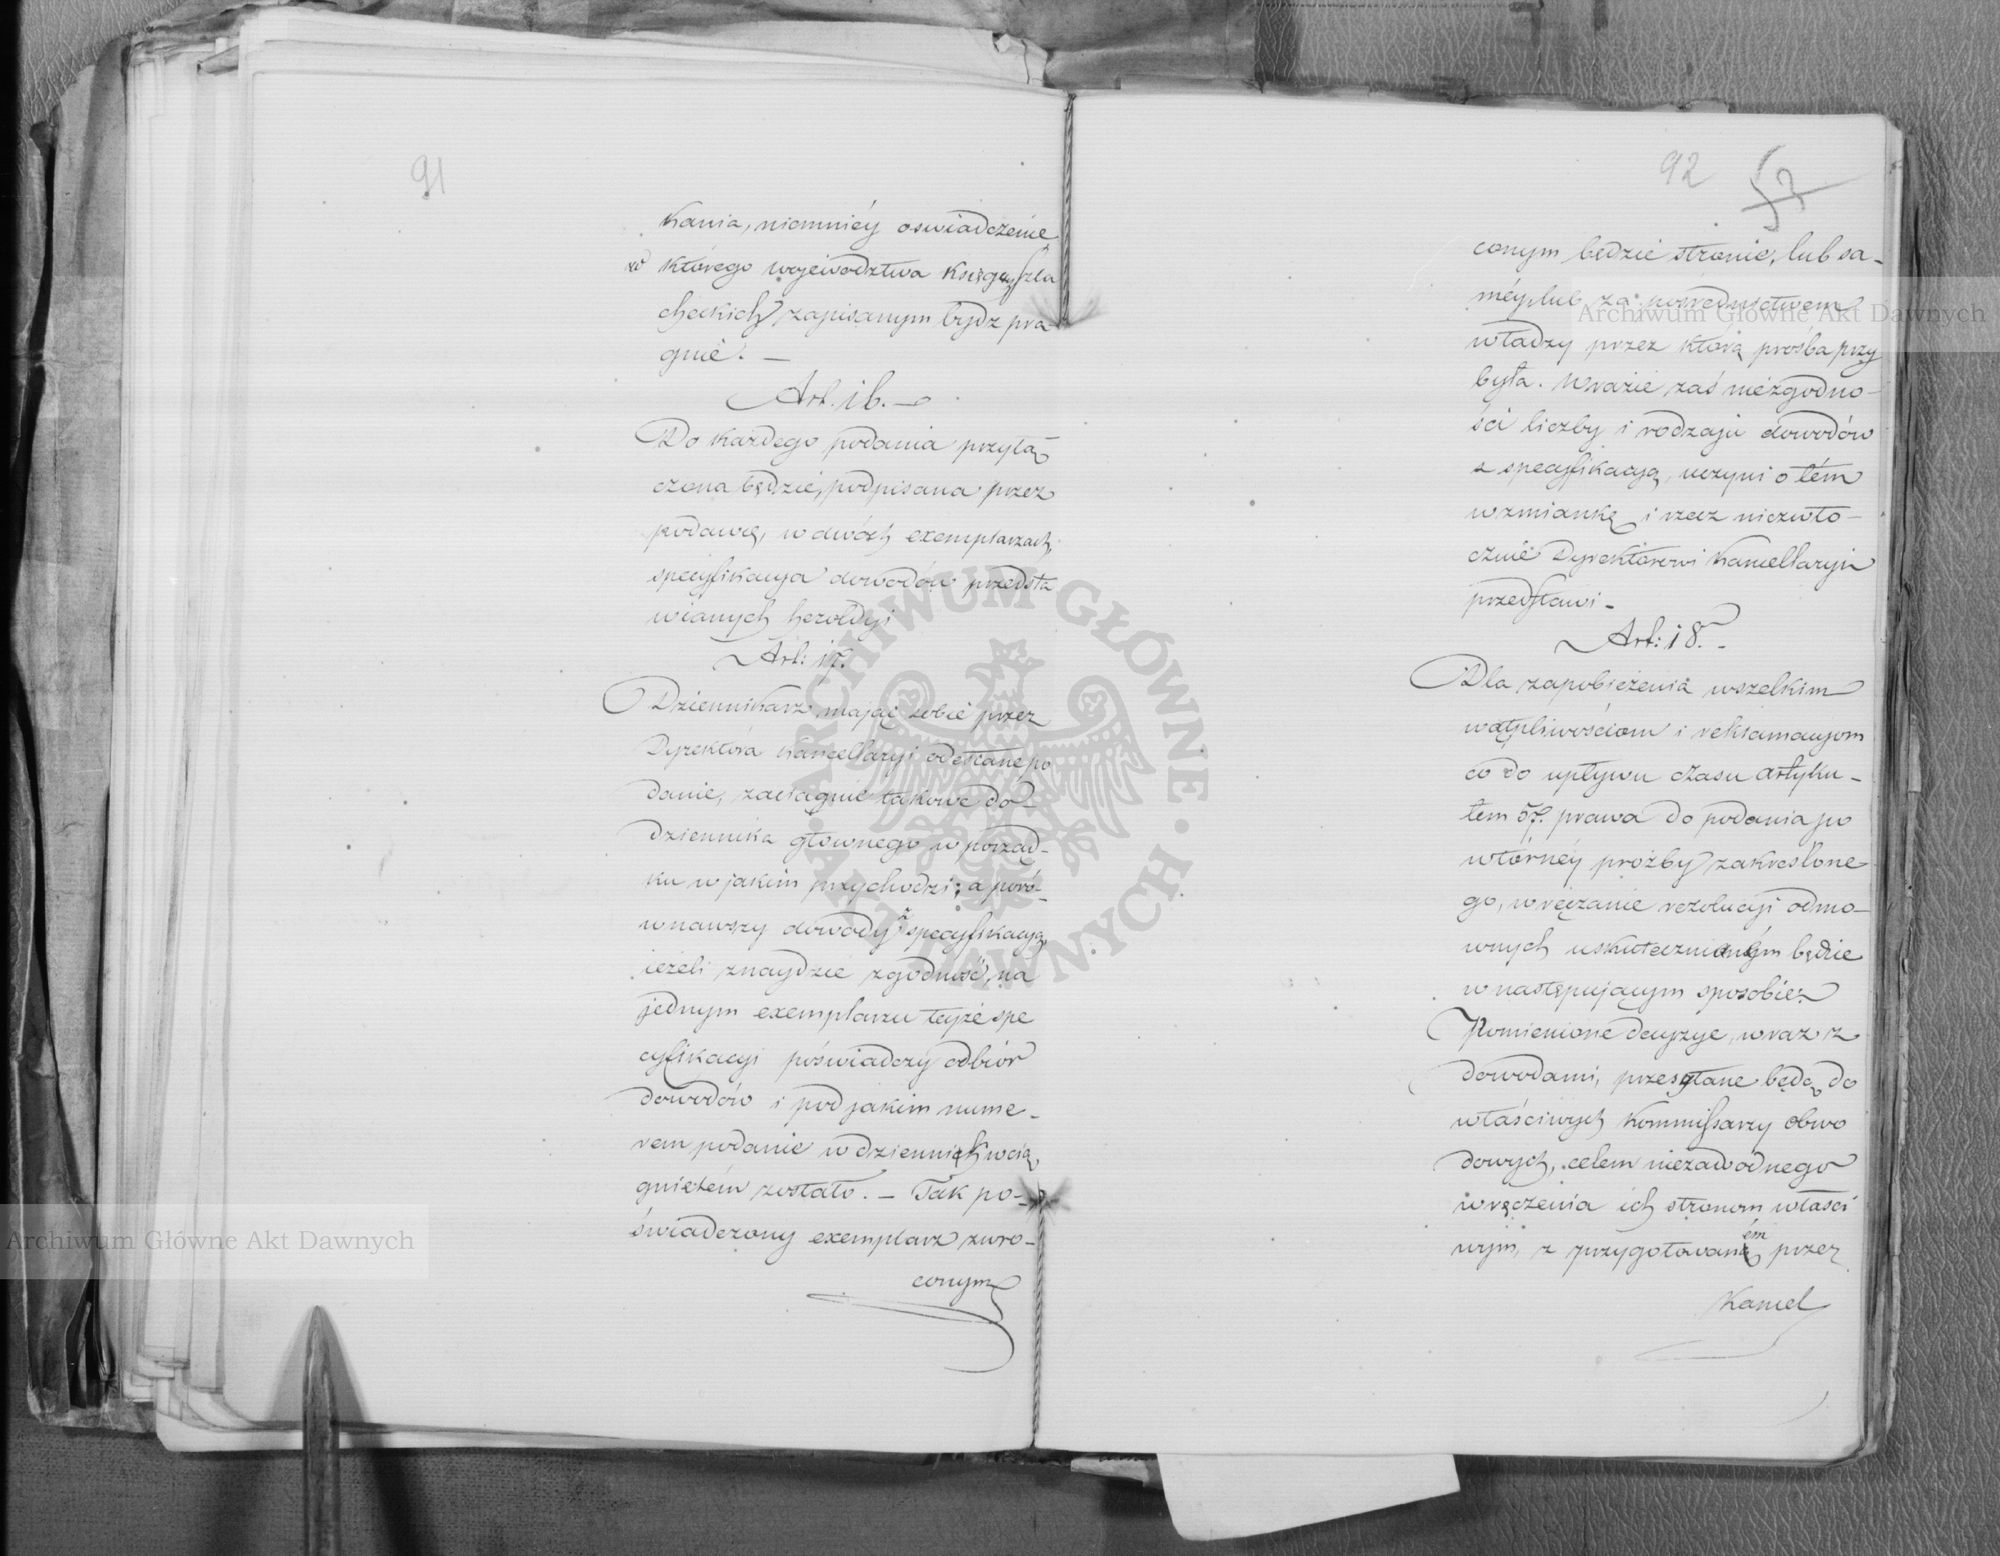 91
kania, niemniéy oswiadczenie
w którego województwa księgę szla
checkich zapisanym bydz pra-
gnie. —
Art. 16. —
Do każdego podania przyłą-
czona będzie, podpisana przez
podawcę, w dwóch exemplarzach,
specyfikacya dowodów przedsta
wianych heroldyi
Art: 17.
Dziennikarz maiąc sobie przez
Dyrektora Kancellaryi odesłane po
danie, zaciągnie takowe do-
dziennika głownego w porząd-
ku w jakim przychodzi; a poró-
wnawszy dowody z specyfikacyą,
ieżeli znaydzie zgodność, na
jednym exemplarzu teyże spe
cyfikacyi poświadczy odbiór
dowodów i pod jakim nume-
rem podanie w dziennik wcią
gniętém zostało. — Tak po-
świadczony exemplarz zwro-
conym
92
57
conym będzie stronie, lub sa-
méy, lub za pośrednictwem
władzy przez którą prośba przy
była. W razie zaś niezgodno-
ści liczby i rodzaju dowodów
z specyfikacyą, uczyni o tém
wzmiankę i rzecz niezwło-
cznie Dyrektorowi Kancellaryi
przedstawi -
Art: 18. -
Dla zapobieżenia wszelkim
wątpliwościom i reklamacyom
co do upływu czasu artyku-
łem 57. prawa do podania po
wtórnéy prożby zakreślone-
go, wręczanie rezolucyi odmo-
wnych uskutecznianém będzie
w następującym sposobie:
Pomienione decyzye, wraz z
dowodami, przesyłane będą do
właściwych Kommissarzy obwo
dowych, celem niezawodnego
wręczenia ich stronom właści
wym, z przygotowaném przez
Kancel
Archiwum Główne Akt Dawnych
Archiwum Główne Akt Dawnych
ARCHIWUM GŁÓWNE • AKT DAWNYCH •